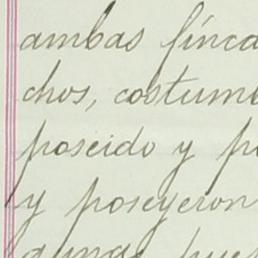 ambas finca
chos, costumb
poseido y p
y poseyeron